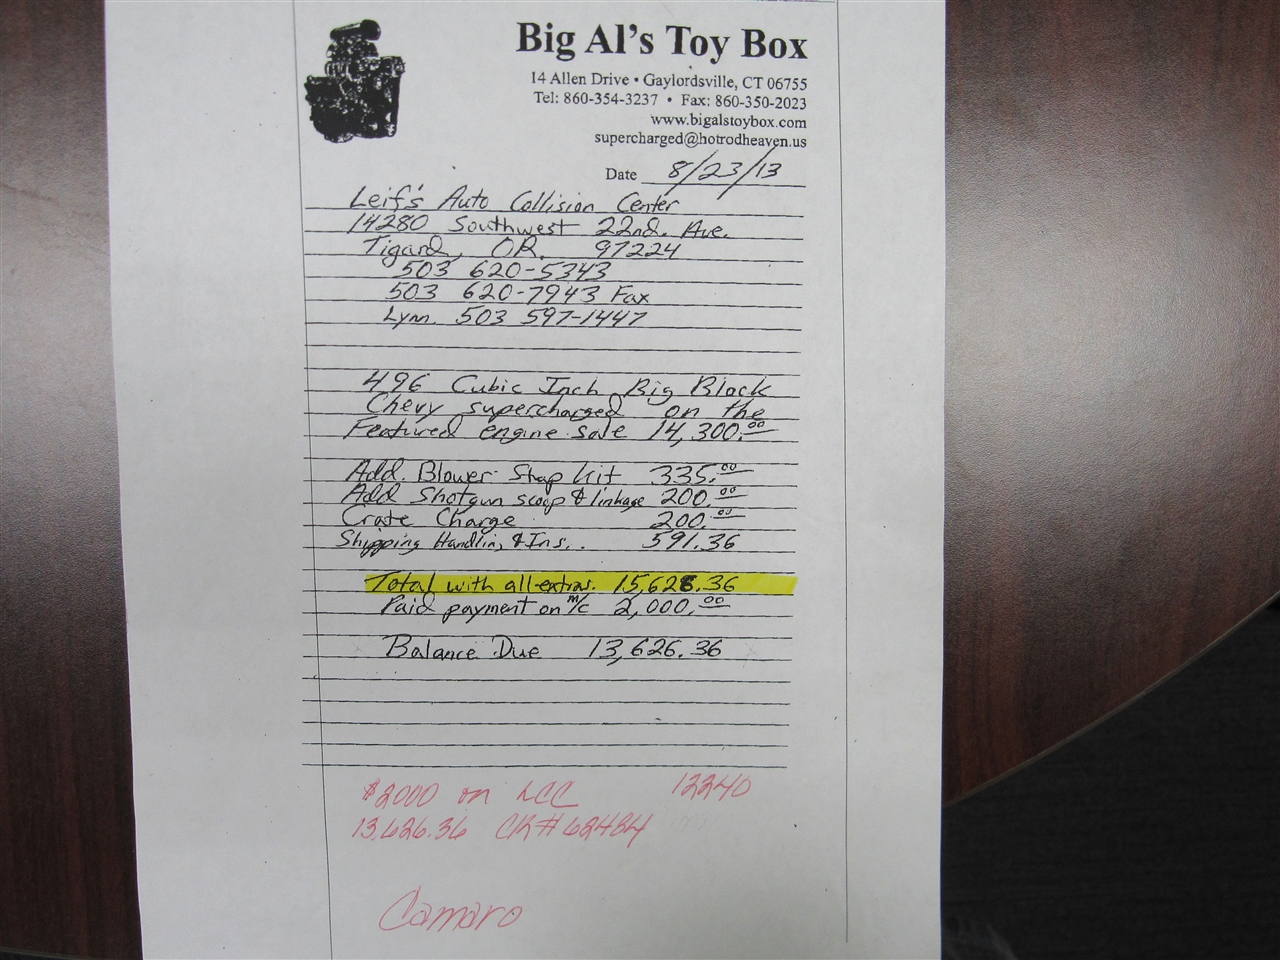 Big Al's Toy Box
14 Allen Drive • Gaylordsville, CT 06755
Tel: 860-354-3237 • Fax: 860-350-2023
www.bigalstoybox.com
supercharged@hotrodheaven.us
Date 8/23/13
Leif's Auto Collision Center
14280 Southwest 22nd. Ave.
Tigard, OR. 97224
503 620-5343
503 620-7943 Fax
Lynn. 503 597-1447
496 Cubic Inch Big Block
Chevy supercharged on the
Featured engine sale 14,300.00
Add. Blower Strap kit 335.00
Add Shotgun scoop & linkage 200.00
Crate Charge 200.00
Shipping Handling & Ins.. 591.36
Total with all extras. 15,626.36
Paid payment on M/C 2,000.00
Balance Due 13,626.36
$2000 on LCC 12240
13,626.36 CK# 62484
Camaro